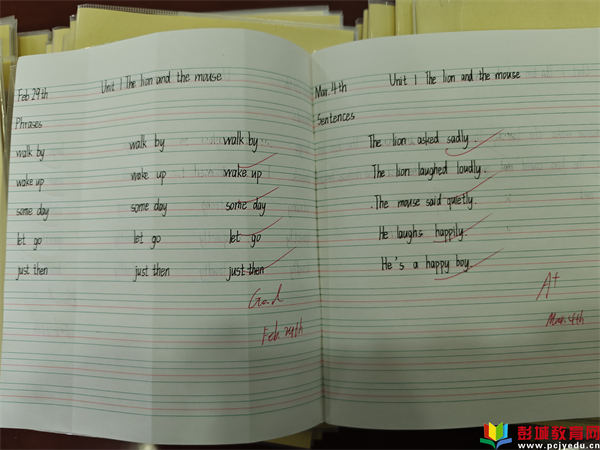 Feb 29th Unit 1 The lion and the mouse
Phrases
walk by walk by walk by
wake up wake up wake up
some day some day some day
let go let go let go
just then just then just then
Good
Feb 29th
Mar. 4th Unit 1 The lion and the mouse
Sentences
The lion asked sadly.
The lion laughed loudly.
The mouse said quietly.
He laughs happily.
He's a happy boy.
A+
Mar. 4th
彭城教育网
www.pcjyedu.cn